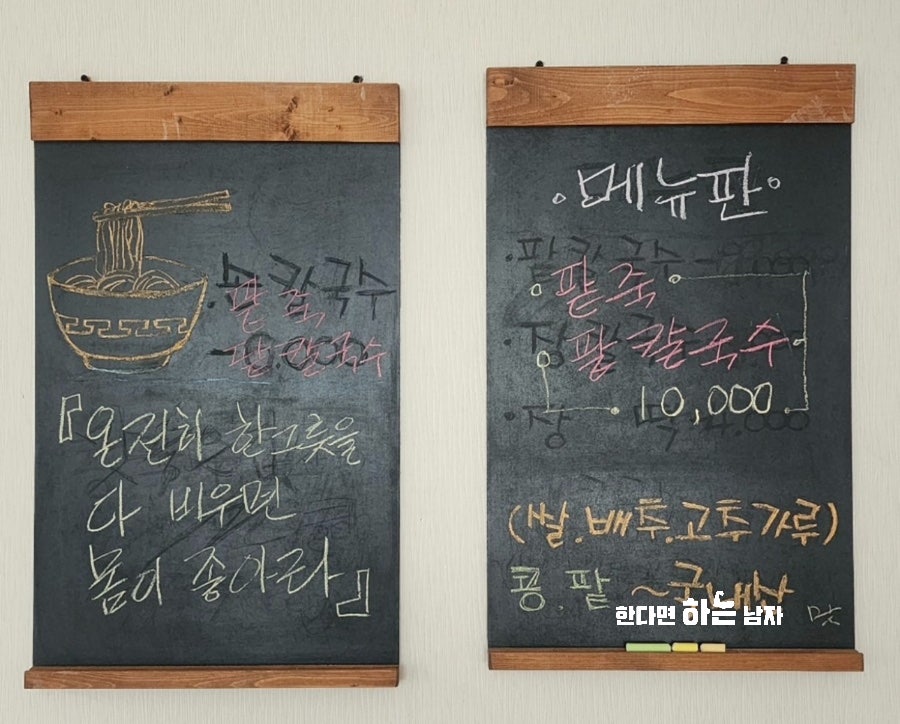 팥죽
팥칼국수
『온전히 한그릇을
다 비우면
몸이 좋아라』
·메뉴판·
팥죽
팥칼국수
10,000
(쌀.배추.고추가루)
콩.팥 ~국내산
한다면 하는 남자